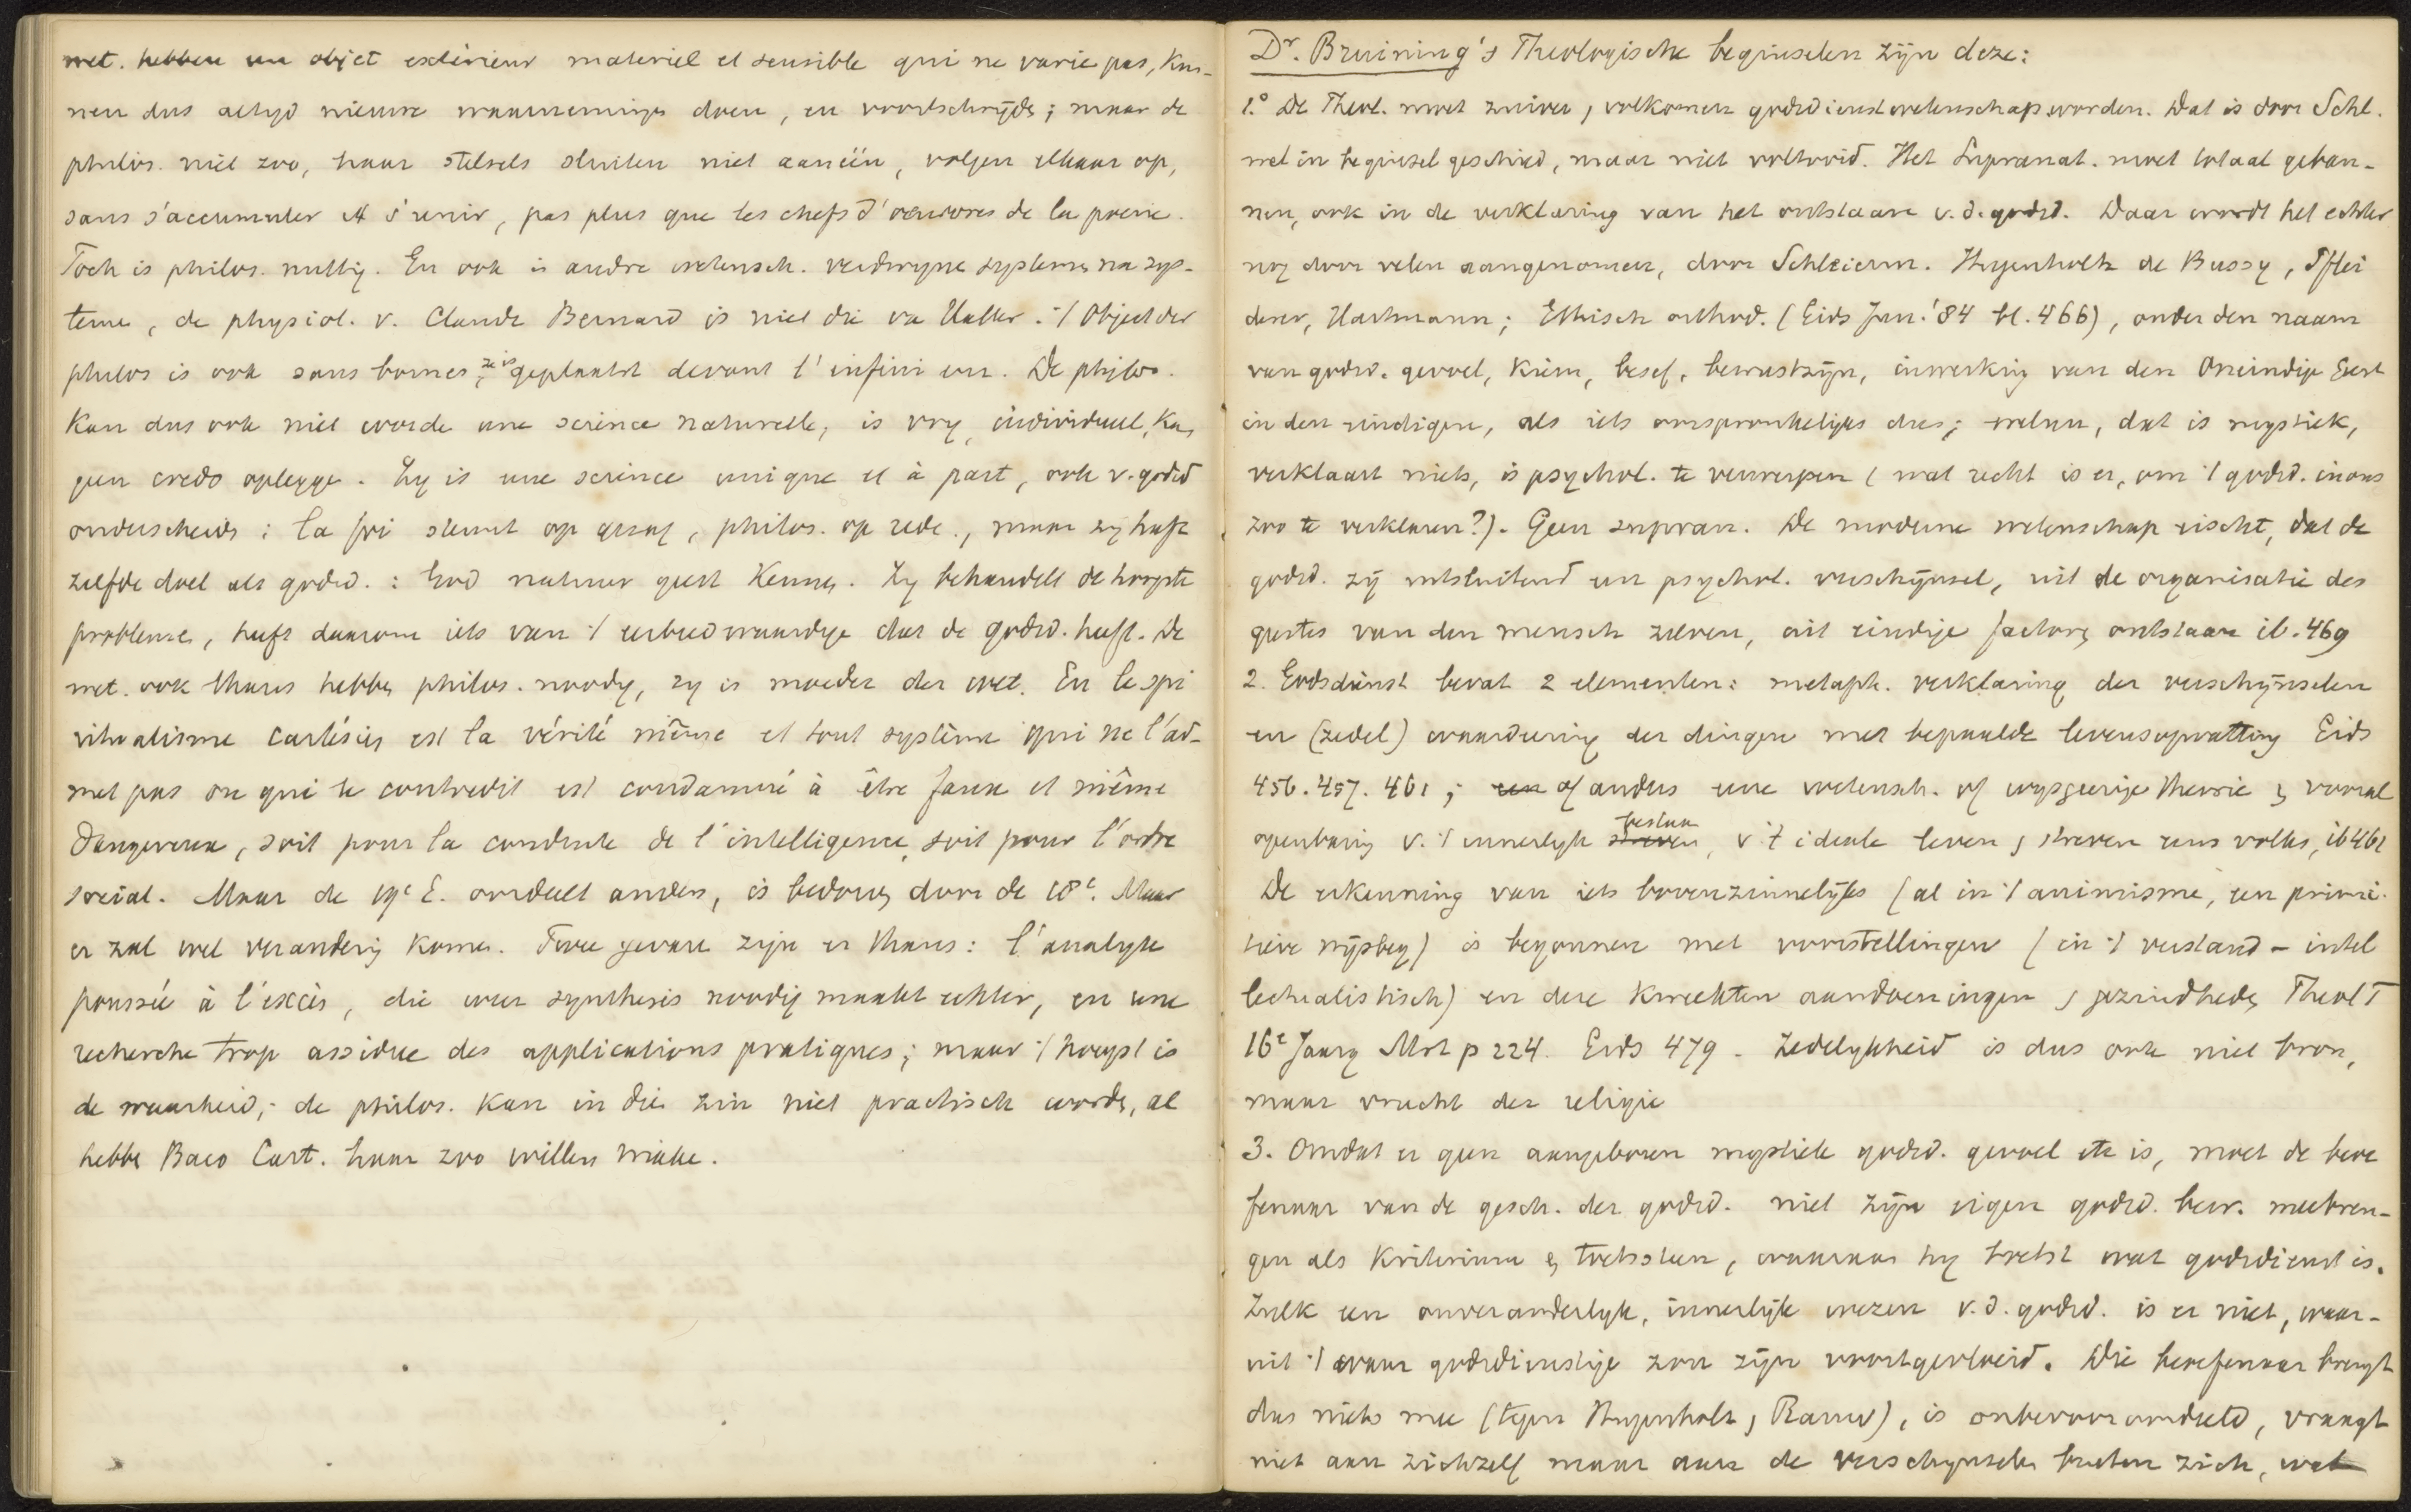 wet. hebben un objet extérieur materiel et sensible qui ne varie pas, kun-
nen dus altyd nieuwe waarneminge doen, en voortschrijde; maar de
philos. niet zoo, haar stelsels sluiten niet aanéén, volgen elkaar op,
sans s'accumuler et s'unir, pas plus que les chefs d'oeuvres de la poesie.
Toch is philos. nuttig. En ook in andre wetensch. verdwyne systemes na sys-
teme, de physiol. v. Claude Bernard is niet die va Haller. 't Object der
philos is ook sans bornes, ze is geplaatst devant l'infini en. De philos.
kan dus ook niet worde une science naturelle, is vry, individueel, kan
geen credo oplegge. Zy is une science unique et à part, ook v. godsd
onderscheide: la foi steunt op gezag, philos. op rede., maar zy heeft
zelfde doel als godsd.: God natuur geest kennen. Zy behandelt de hoogste
probleme, heeft daarom iets van 't eerbiedwaardige dat de godsd. heeft. De
wet. ook thans hebben philos. noodig, zy is moeder der wet. En le spi
ritualisme cartésien est la vérité même et tout système qui ne l'ad-
met pas ou qui le contredit est condamné à être faux et même
dangereux, soit pour la conduite de l'intelligence, soit pour l'ordre
social. Maar de 19e E. oordeelt anders, is bedorven door de 18e. Maar
er zal wel verandering komen. Twee gevare zijn er thans: l'analyse
poussée à l'excès, die weer synthesis noodig maakt echter, en une
recherche trop assidue des applications pratiques; maar 't hoogst is
de waarheid; de philos. kan in die zin niet practisch worde, al
hebbe Baco Cart. haar zoo willen make.
Dr. Bruining's Theologische beginselen zijn deze:
1.° De Theol. moet zuiver, volkomen godsdienstwetenschap worden. Dat is door Schl.
wel in beginsel geschied, maar niet voltooid. Het Supranat. moet totaal geban-
nen, ook in de verklaring van het ontstaan v. d. godsd. Daar wordt het echter
nog door velen aangenomen, door Schleierm. Hugenholtz de Bussy, Pflei
derer, Hartmann; Ethisch orthod. (Gids Jun. '84 bl. 466), onder den naam
van godsd. gevoel, kiem, besef, bewustzijn, inwerking van den Oneindige Geest
in den eindigen, als iets oorspronkelijks dus; welnu, dat is mystiek,
verklaart niets, is psychol. te verwerpen (wat recht is er, om 't godsd. in ons
zoo te verklaren?). Geen supran. De moderne wetenschap eischt, dat de
godsd. zij uitsluitend een psychol. verschijnsel, uit de organisatie des
geestes van den mensch zelven, uit eindige factoren ontstaan ib. 469
2. Godsdienst bevat 2 elementen: metaph. verklaring der verschijnselen
en (zedel) waardeering der dingen met bepaalde levensopvatting Gids
456. 457. 461; een of anders eene wetensch. of wijsgeerige theorie en vooral
openbaring v. 't innerlijk streven bestaan, v 't ideale leven en streven eens volks, ib 461
De erkenning van iets bovenzinnelijks (al in 't animisme, een primi-
tieve wijsbeg) is begonnen met voorstellingen (in 't verstand - intel
lectualistisch) en deze kweekten aandoeningen en gezindheden Theol T
16e Jaarg Mrt p 224. Gids 479 - Zedelykheid is dus ook niet bron,
maar vrucht der religie
3. Omdat er geen aangeboren mystiek godsd. gevoel etc is, moet de beoe
fenaar van de gesch. der godsd. niet zijn eigen godsd. bew. meebren-
gen als kriterium en toetssteen, waaraan hy toetst wat godsdienst is.
Zulk een onveranderlijk, innerlijk wezen v. d. godsd. is er niet, waar-
uit 't ware godsdienstige zou zijn voortgevloeid. Die beoefenaar brengt
dus niets mee (tegen Hugenholtz, Rauw), is onbevooroordeeld, vraagt
niet aan zichzelf maar aan de verschynselen buiten zich, wat